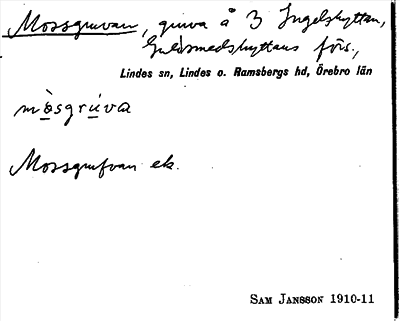 Mossgruvan, gruva å 3 Ingelshyttan,
Guldsmedshyttans förs.,
Lindes sn, Lindes o. Ramsbergs hd, Örebro län
mòsgrúva
Mossgrufvan ek.
SAM JANSSON 1910-11